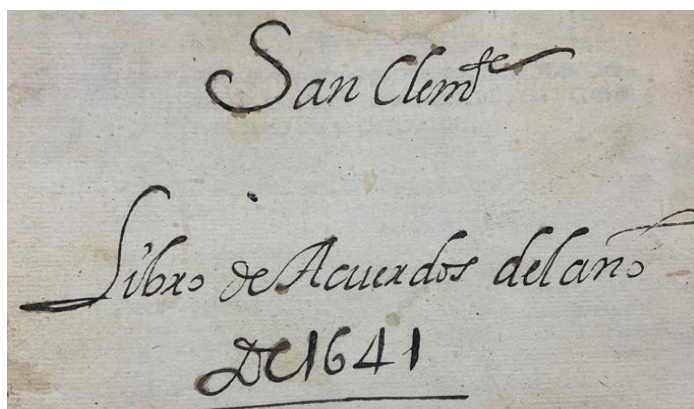 San Clemte
Libro de Acuerdos del año
De 1641